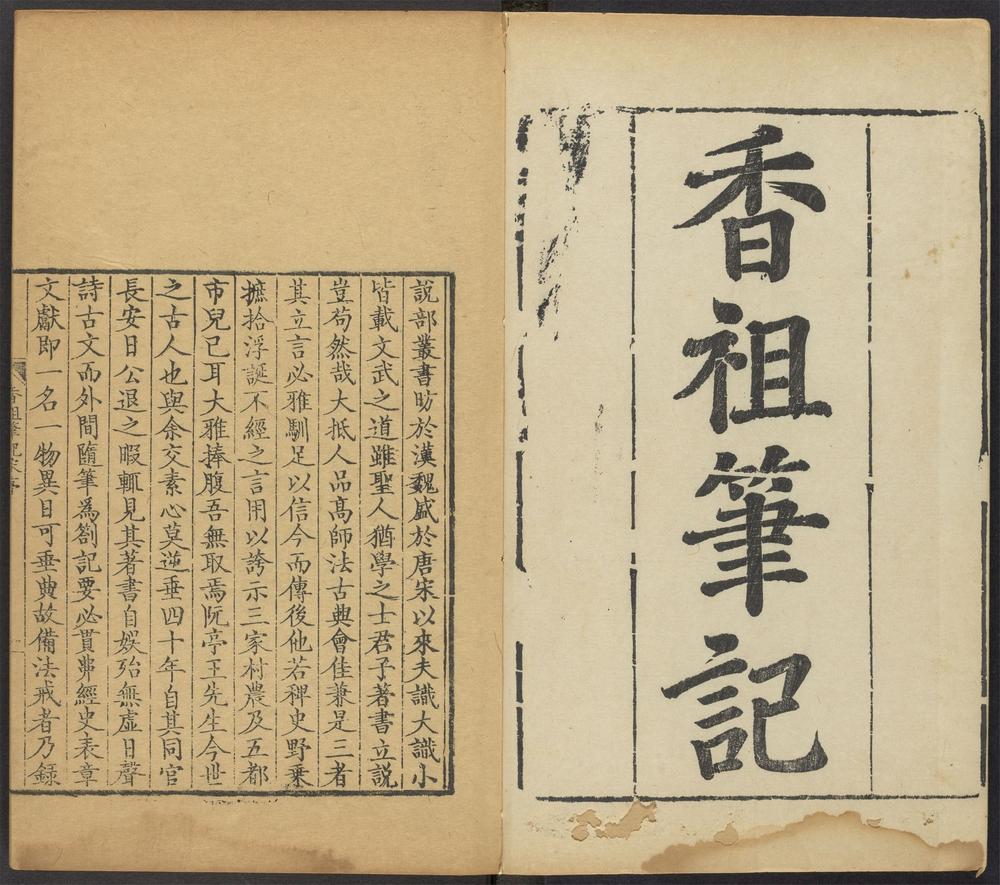 香祖筆記
說部叢書昉於漢魏盛於唐宋以來夫識大識小
皆載文武之道雖聖人猶學之士君子著書立說
豈苟然哉大抵人品高師法古典會佳兼是三者
其立言必雅馴足以信今而傳後他若稗史野乗
摭拾浮誕不經之言用以誇示三家村農及五都
市兒已耳大雅捧腹吾無取焉阮亭王先生今世
之古人也與余交素心莫逆垂四十年自其同官
長安日公退之暇輒見其著書自娛殆無虛日聲
詩古文而外間隨筆爲劄記要必貫弗經史表章
文獻即一名一物異日可垂典故備法戒者乃錄
香祖筆記